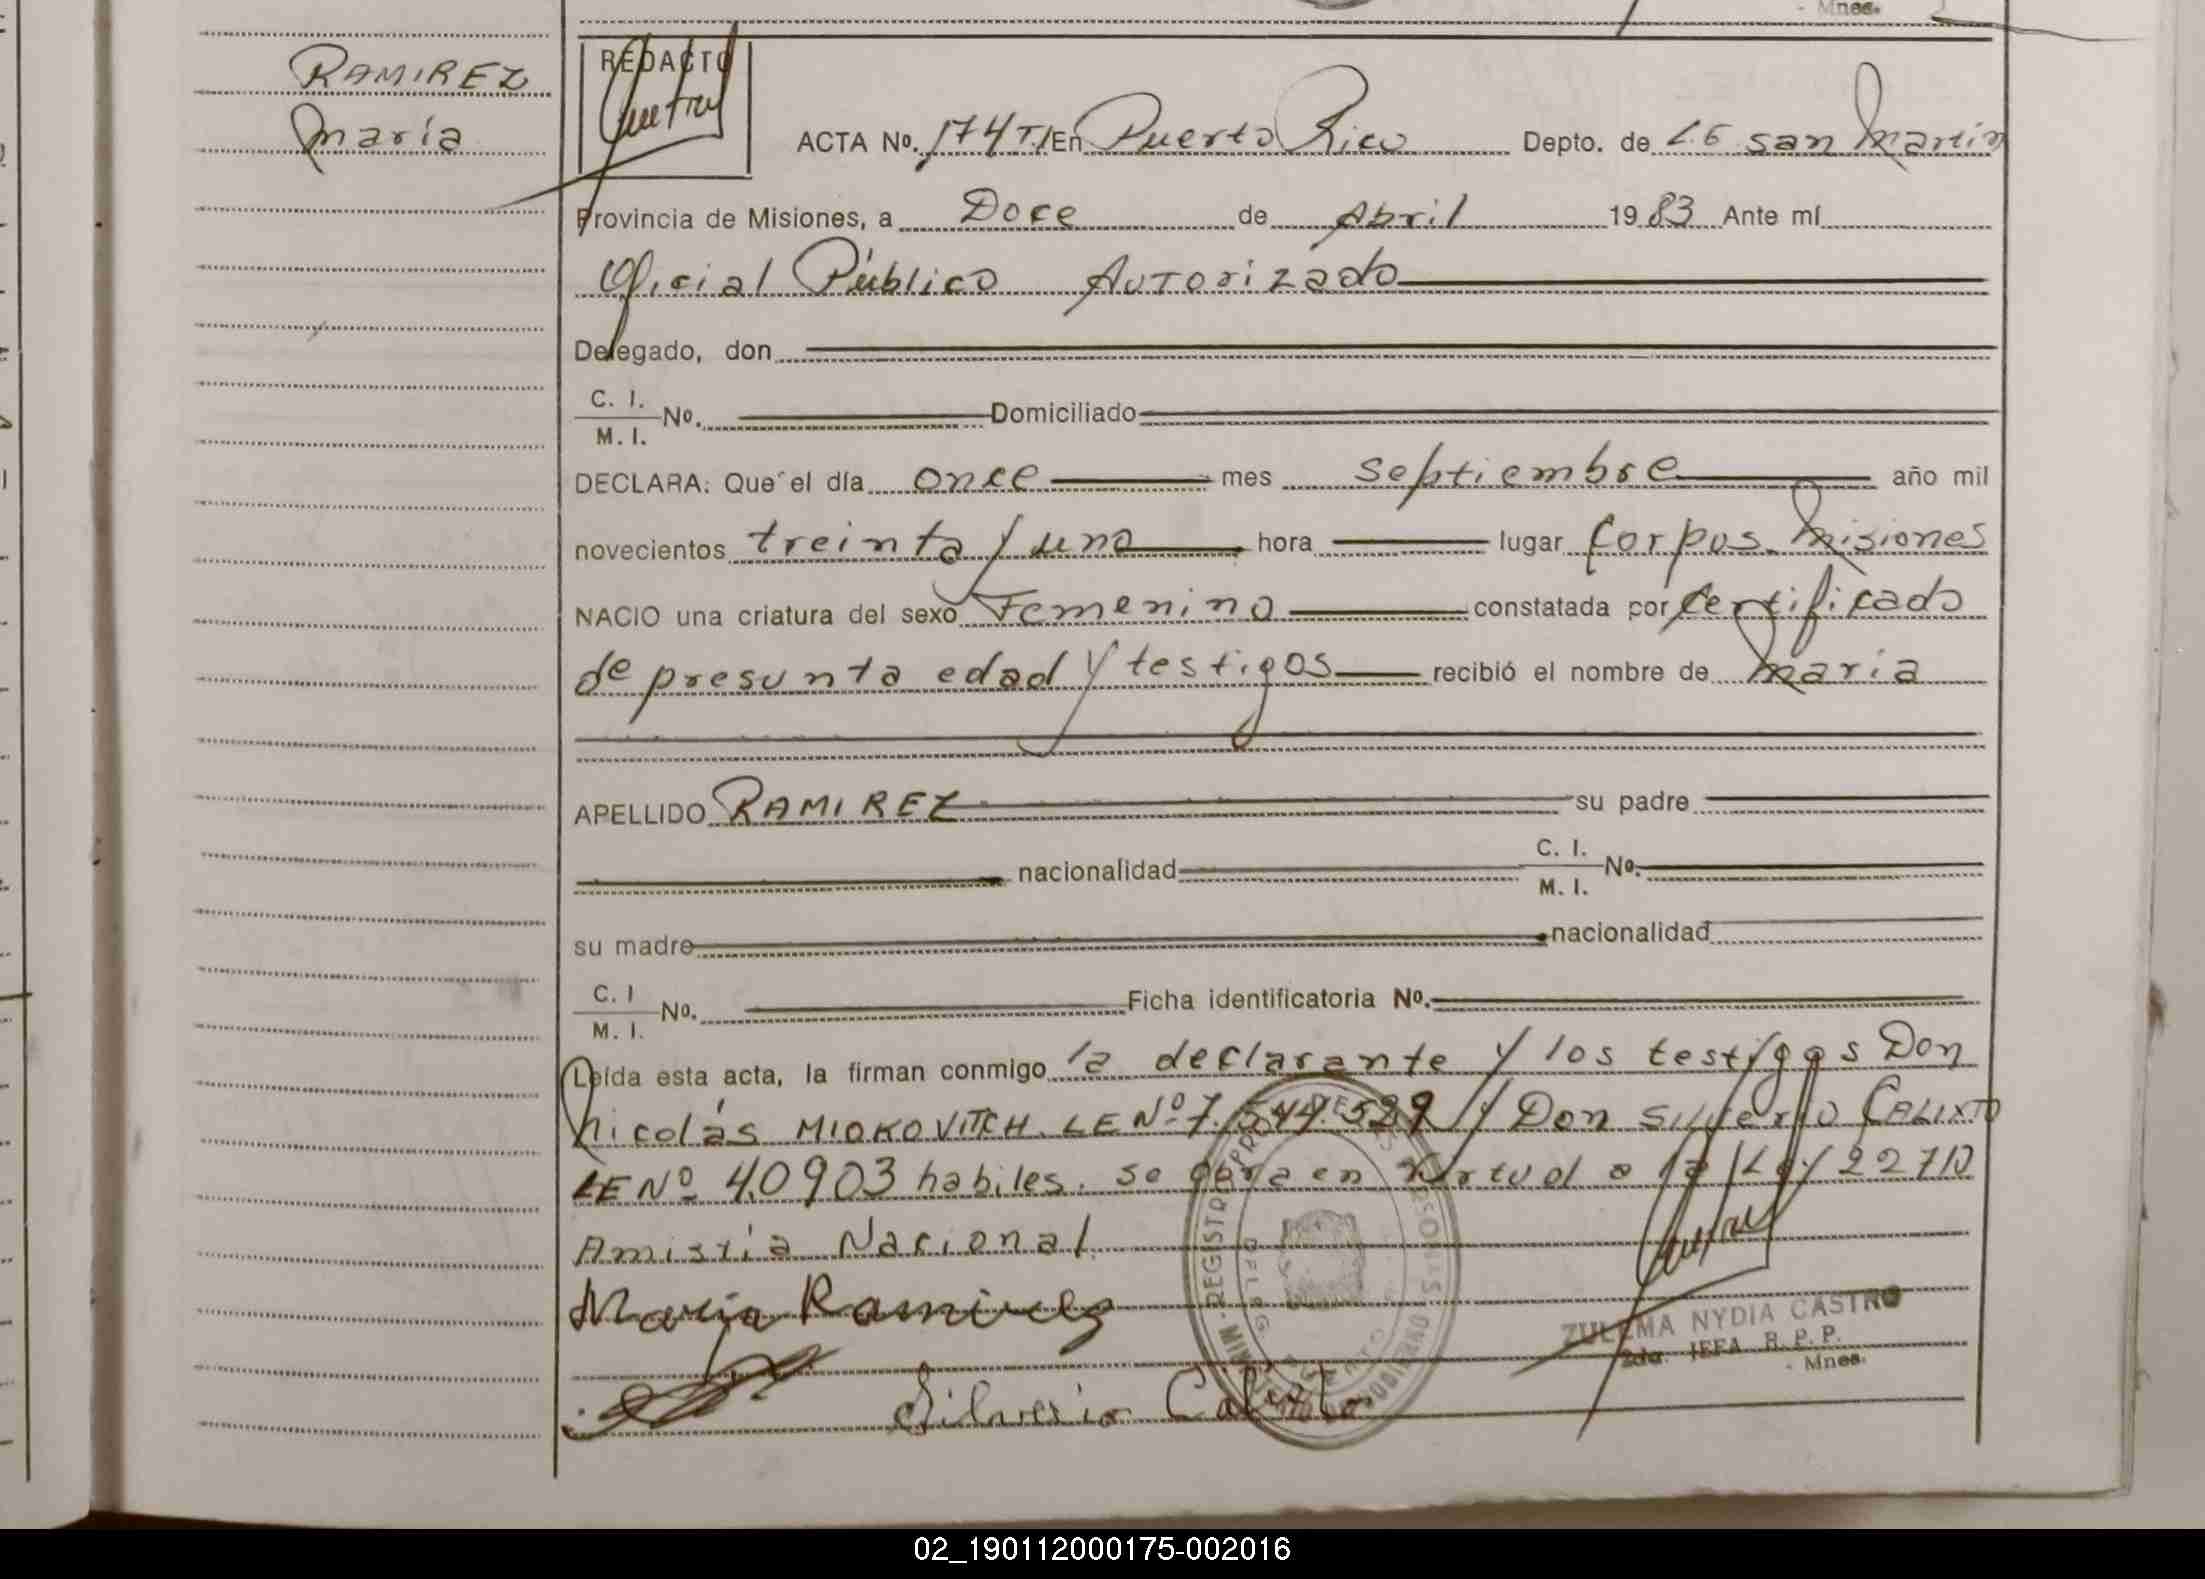 Mnes.
RAMIREZ
María
REDACTO
ACTA Nº. 174 T.I En Puerto Rico Depto. de L.G. San Martín
Provincia de Misiones, a Doce de Abril 1983 Ante mí
Oficial Público Autorizado
Delegado, don
C. I.
M. I. Nº. Domiciliado
DECLARA: Que el día once mes septiembre año mil
novecientos treinta y uno hora lugar Corpus. Misiones
NACIO una criatura del sexo Femenino constatada por certificado
de presunta edad y testigos recibió el nombre de María
APELLIDO RAMIREZ su padre
nacionalidad C. I.
M. I. Nº.
su madre nacionalidad
C. I
M. I. Nº. Ficha identificatoria Nº.
Leída esta acta, la firman conmigo la declarante y los testigos Don
Nicolás MIOKOVITCH. LE Nº 7.544.529 y Don Silverio CALIXTO
LE Nº 40903 habiles. se obra en virtud a la Ley 22710
Amistía Nacional.
Maria Ramirez
ZULEMA NYDIA CASTRO
2da. JEFA R. P. P.
- Mnes.
Silverio Calixto
02_190112000175-002016